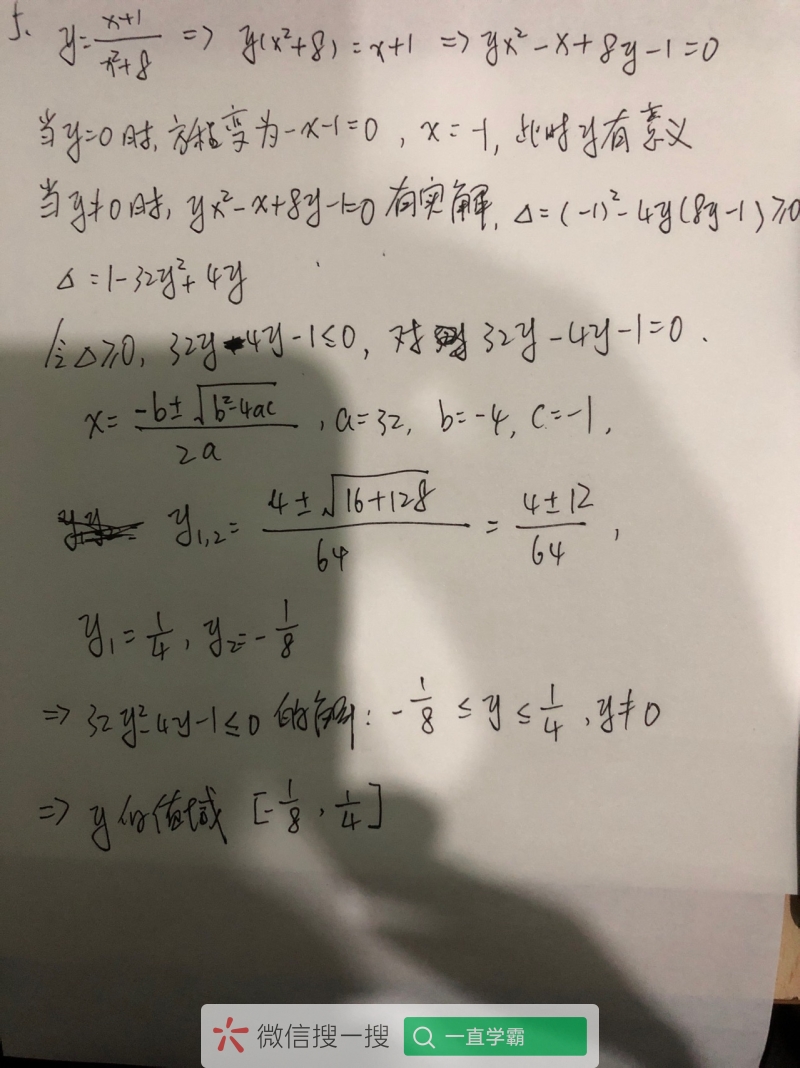 5、 y=\frac{x+1}{x²+8} => y(x²+8)=x+1 => yx²-x+8y-1=0
当y=0时,方程变为-x-1=0,x=-1,此时y有意义
当y≠0时,yx²-x+8y-1=0有实解,Δ=(-1)²-4y(8y-1)≥0
Δ=1-32y²+4y
令Δ≥0,32y-4y-1≤0,对 32y-4y-1=0.
x=\frac{-b±\sqrt{b²-4ac}}{2a},a=32,b=-4,c=-1,
y₁,₂=\frac{4±\sqrt{16+128}}{64}=\frac{4±12}{64},
y₁=\frac{1}{4},y₂=-\frac{1}{8}
=> 32y²-4y-1≤0的解:-\frac{1}{8}≤y≤\frac{1}{4},y≠0
=> y的值域[-\frac{1}{8},\frac{1}{4}]
微信搜一搜 一直学霸